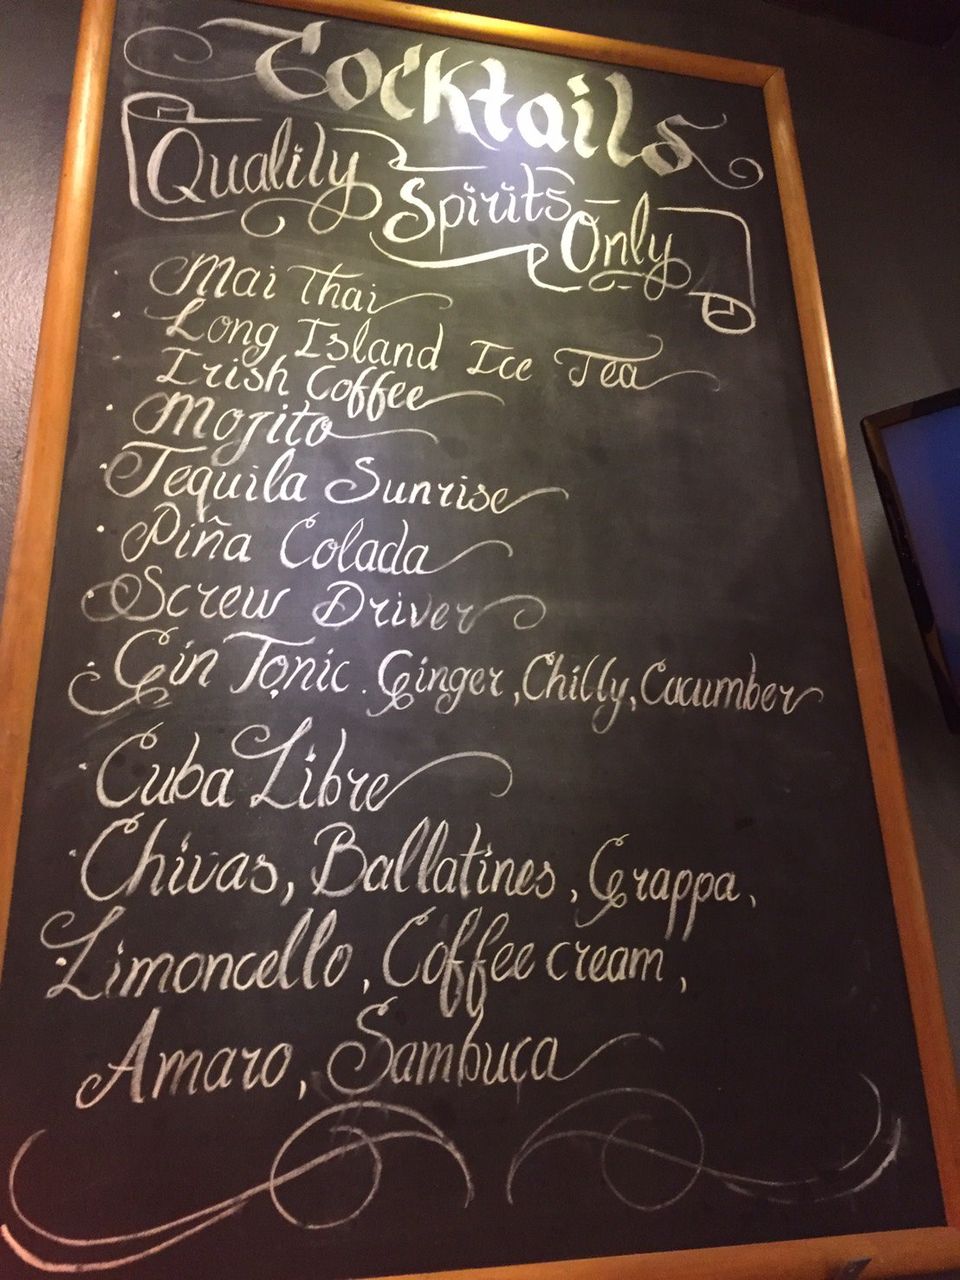 Cocktails
Quality Spirits Only
Mai Thai
Long Island Ice Tea
Irish Coffee
Mojito
Tequila Sunrise
Piña Colada
Screw Driver
Gin Tonic. Ginger, Chilly, Cacumber
Cuba Libre
Chivas, Ballatines, Grappa,
Limoncello, Coffee cream,
Amaro, Sambuca